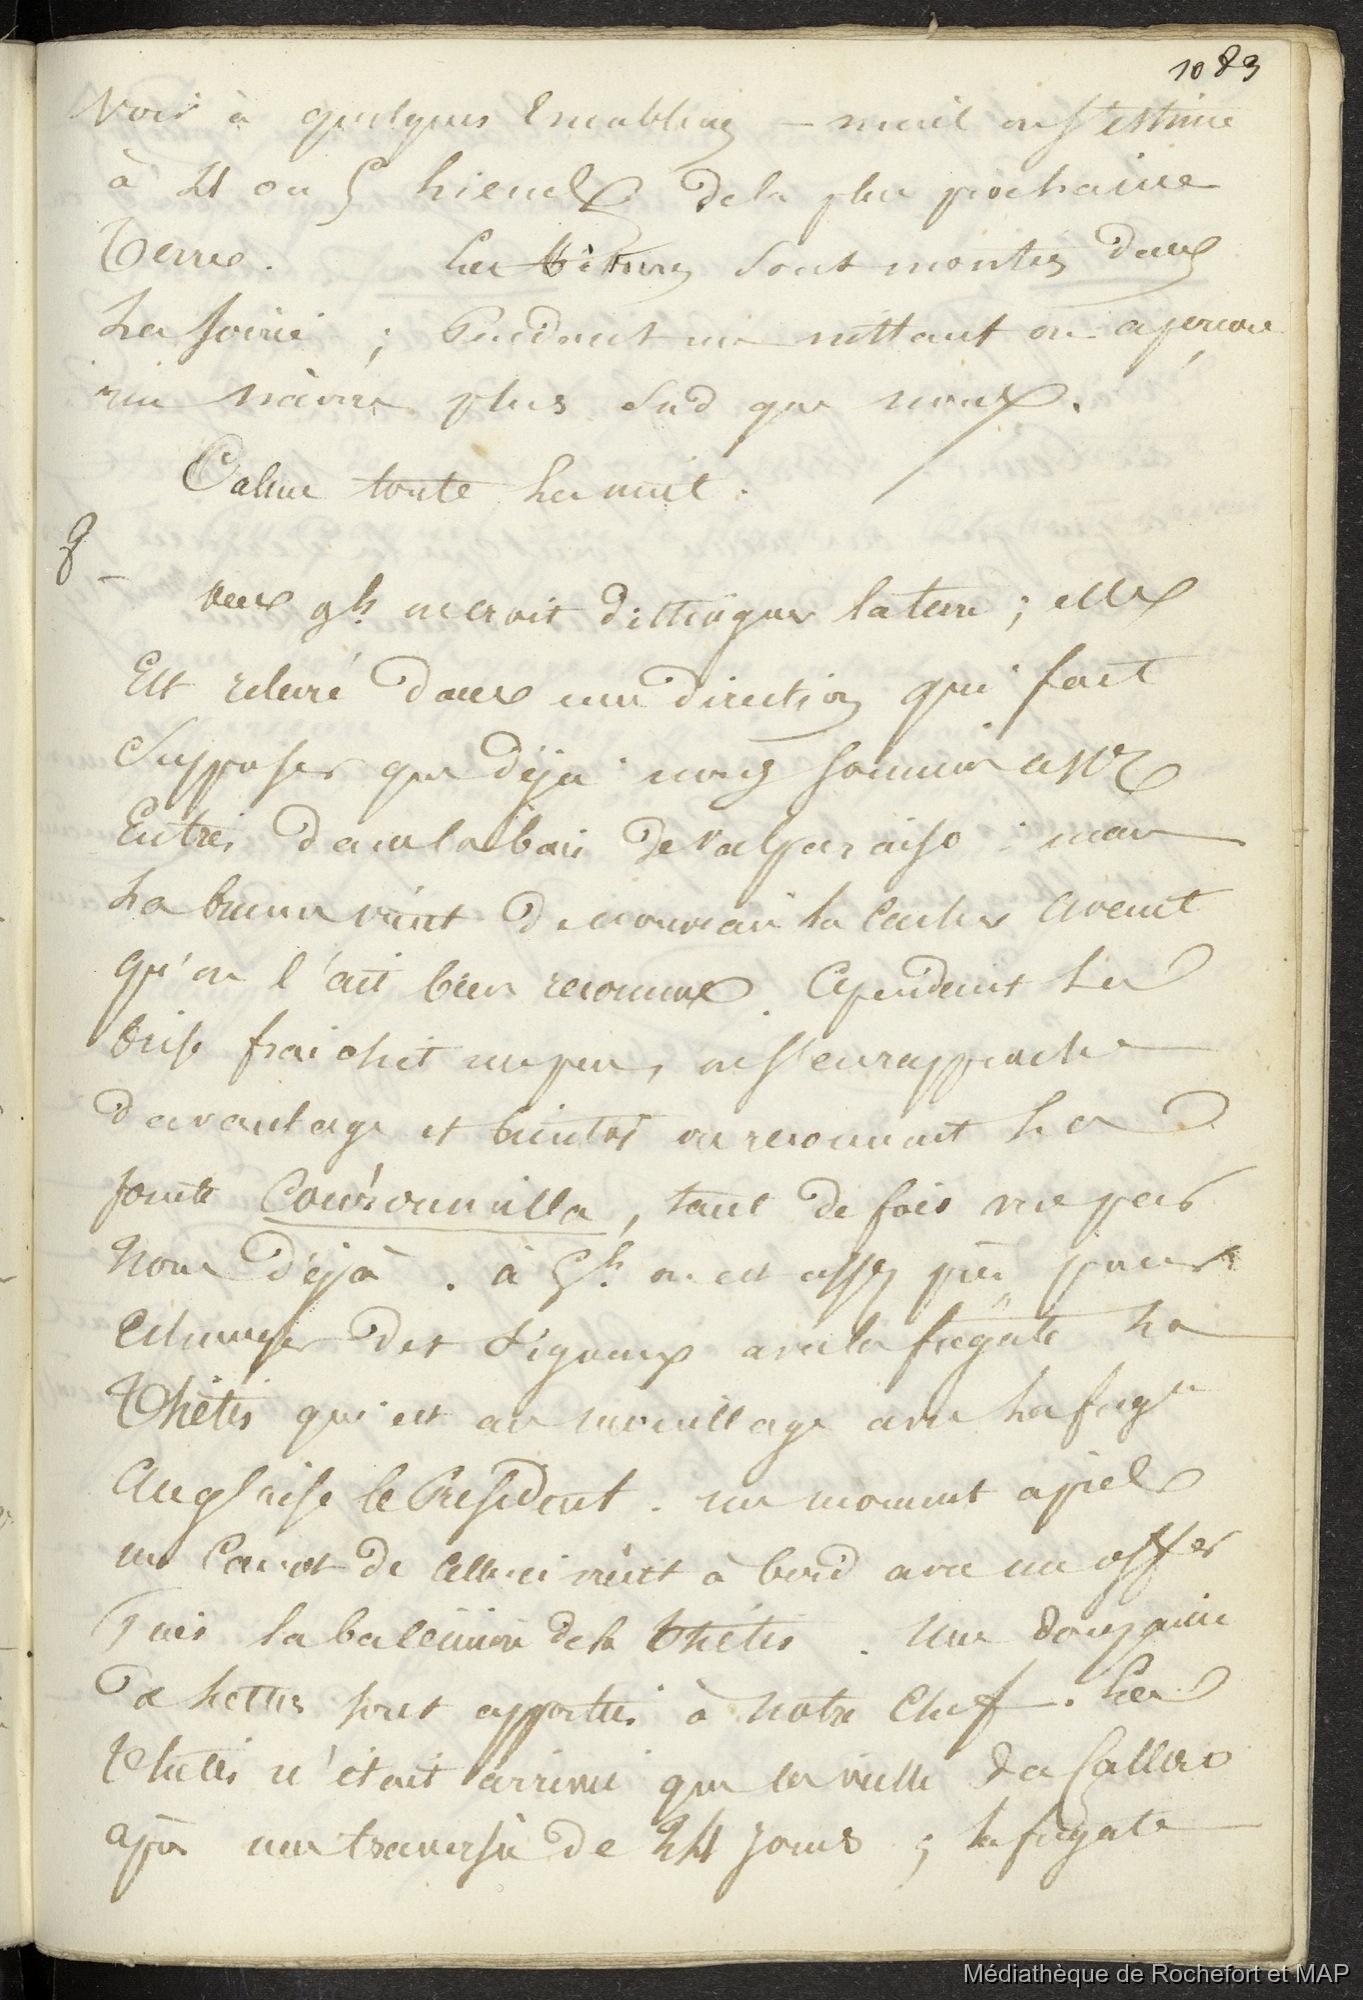 1083
voir à quelques encablures – mais on s'estime
à 4 ou 5 lieues de la plus prochaine
Terre. Les sont montés dans
La soirée ; Cependant en mettant on aperçoit
rien navire plus sud que nous.
Calme toute La nuit.
8 –
vers 9h on croit distinguer la terre ; elle
Est relevé dans une direction qui fait
Supposer que déja nous sommes assez
Entrés dans la baie de valparaiso : mais
La brume vient de nouveau la cacher avant
qu'on l'ait bien reconnue. Cependant La
brise fraichit un peu, on s'en rapproche
davantage et bientôt on reconnait La
pointe Couroumilla, tant de fois vue par
Nous Déjà. à 5h. on est assez près pour
échanger des signaux avec la frégate La
Thétis qui est au mouillage avec La frégte
Anglaise le Président. un moment après
un Canot de celle ci vient à bord avec un offer
Puis la baleinière de la Thétis. Une douzaine
De Lettres sont apportées à notre Chef. La
Thétis n'était arrivée que la veille da Callao
après une traversée de 24 jours ; la frégate
Médiathèque de Rochefort et MAP